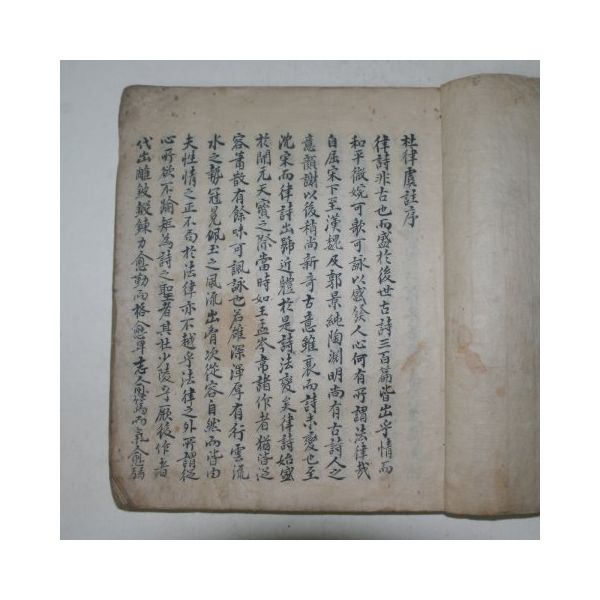 杜律虞註序
律詩非古也而盛於後世古詩三百篇皆出乎情而
和平微婉可歌可詠以感發人心何有所謂法律哉
自屈宋下至漢魏及郭景純陶淵明尚有古詩人之
意顔謝以後稍尚新奇古意雖衰而詩未變也至
沈宋而律詩出號近體於是詩法變矣律詩始盛
於開元天寶之際當時如王孟岑韋諸作者猶皆從
容蕭散有餘味可諷詠也若雄深渾厚有行雲流
水之勢冠冕佩玉之風流出胷次從容自然而皆由
夫性情之正不局於法律亦不越乎法律之外所謂從
心所欲不踰矩為詩之聖者其杜少陵乎厥後作者
代出雕鎪鍛鍊力愈勤而格愈卑志愈篤而氣愈弱